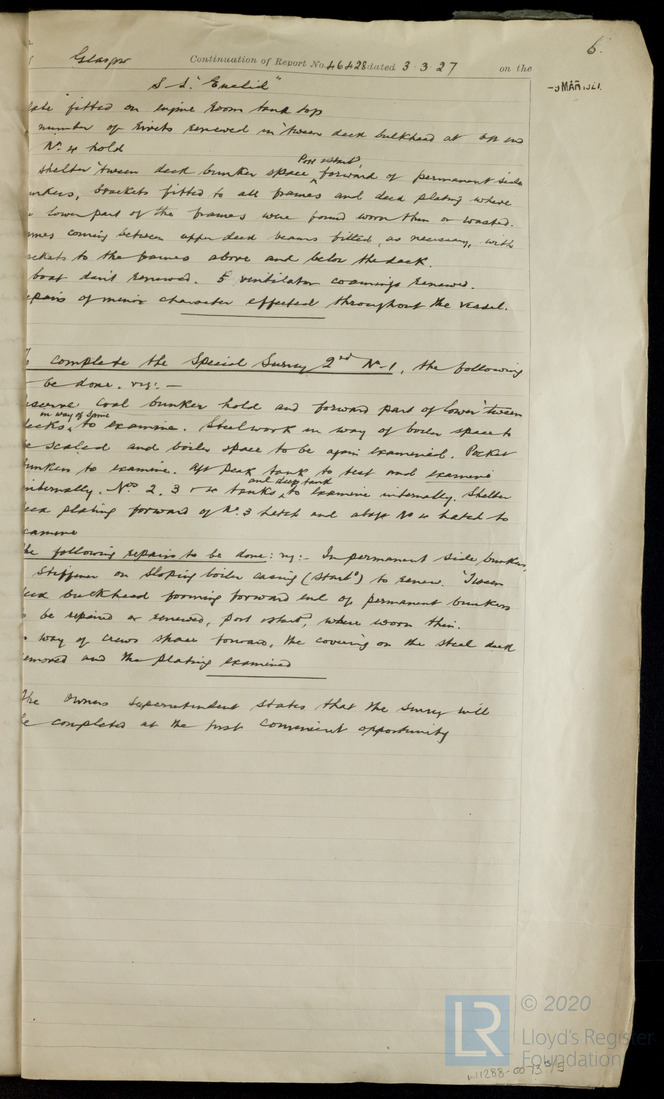 6.
Glasgow Continuation of Report No. 46428 dated 3.3.27 on the
-9 MAR 1927
S.S. "Euclid"
fitted on engine room tank top
number of rivets renewed in 'tween deck bulkhead at end
No. 4 hold
Port & Starb'd,
Shelter 'tween deck bunker space, forward of permanent side
bunkers, brackets fitted to all frames and deck plating where
lower part of the frames were found worn thin or wasted.
coming between upper deck beams fitted, as necessary, with
brackets to the frames above and below the deck.
boat davit renewed. 5 ventilator coamings renewed.
repairs of minor character effected throughout the vessel.
To complete the Special Survey 2nd No. 1, the following
be done. viz:. —
reserve coal bunker hold and forward part of lower 'tween
in way of same
decks, to examine. Steelwork in way of boiler space to
be scaled and boiler space to be again examined. Pocket
bunkers to examine. Aft peak tank to test and examine
and deep tank
internally. Nos 2, 3 & 4 tanks, to examine internally. Shelter
deck plating forward of No. 3 hatch and abaft No 4 hatch to
examine
The following repairs to be done: viz:- In permanent side bunkers,
stiffener on sloping boiler casing (starb'd) to renew. 'Tween
deck bulkhead forming forward end of permanent bunkers
be repaired or renewed, port & starb'd, where worn thin.
way of crews space forward, the covering on the steel deck
removed and the plating examined
The Owners Superintendent states that the survey will
be completed at the first convenient opportunity
LR
© 2020
Lloyd's Register
Foundation
W11288-0073 5/5